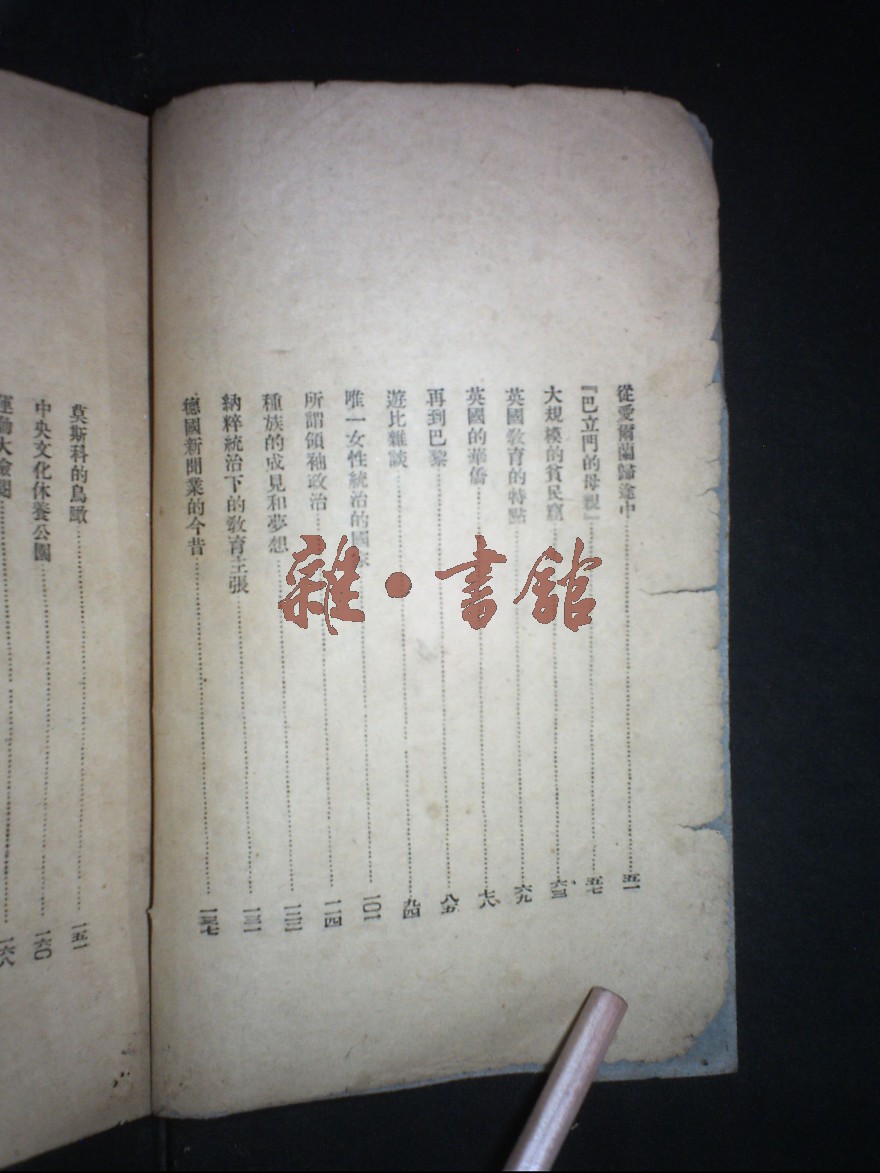 從愛爾蘭歸途中……五一
『巴立門的母親』……五七
大規模的貧民窟……六三
英國教育的特點……六九
英國的華僑……七八
再到巴黎……八五
遊比雜談……九四
唯一女性統治的國家……一〇一
所謂領袖政治……一一四
種族的成見和夢想……一二二
納粹統治下的教育主張……一三一
德國新聞業的今昔……一三七
莫斯科的鳥瞰……一五一
中央文化休養公園……一六〇
運動大檢閱……一六八
雜·書館